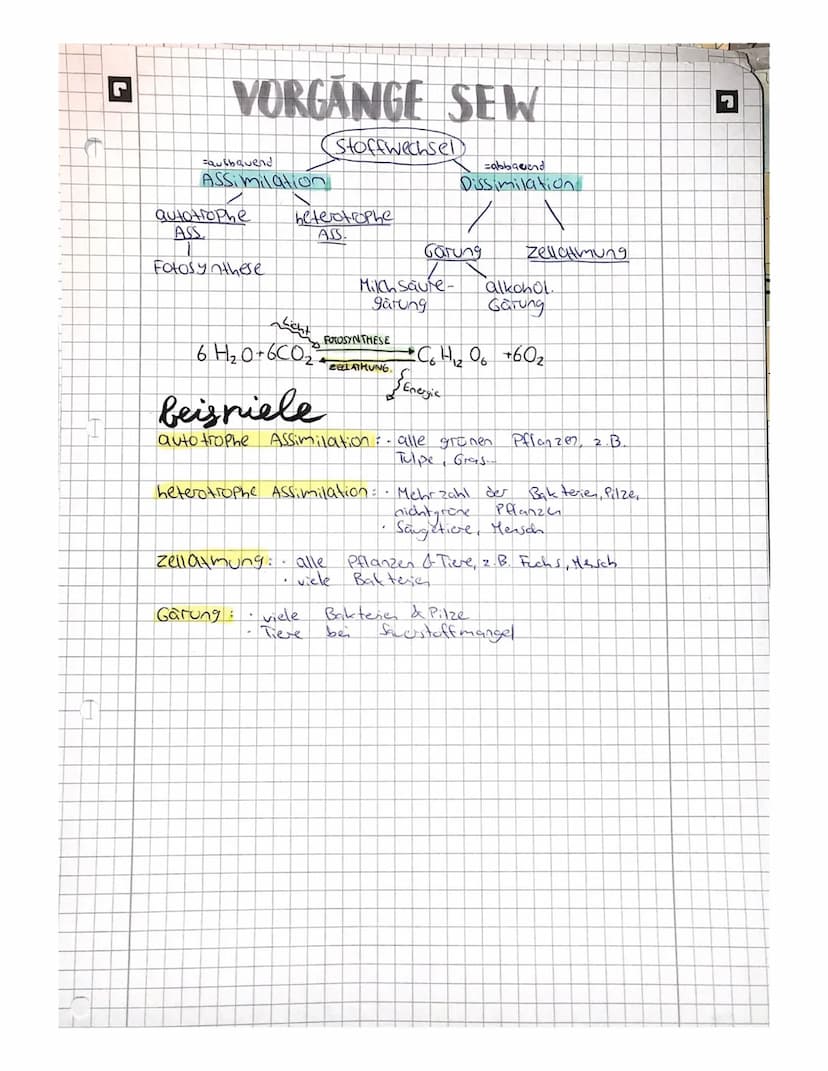 VORGÄNGE SEW
Stoffwechsel
=aufbauend
=abbauend
Assimilation
Dissimilation
autotrophe
Ass.
heterotrophe
Ass.
Fotosynthese
Gärung
Zellatmung
Milchsäure-
gärung
alkohol.
Gärung
Licht
FOTOSYNTHESE
6 H₂O+6CO₂
C₆ H₁₂ O₆ +6O₂
ZELLATMUNG
Energie
Beispiele
autotrophe Assimilation: · alle grünen Pflanzen, z.B.
Tulpe, Gras...
heterotrophe Assimilation: · Mehrzahl der Bakterien, Pilze,
nichtgrüne Pflanzen
· Säugetiere, Mensch
Zellatmung: · alle Pflanzen & Tiere, z.B. Fuchs, Mensch
· viele Bakterien
Gärung: · viele Bakterien & Pilze
· Tiere bei Sauerstoffmangel